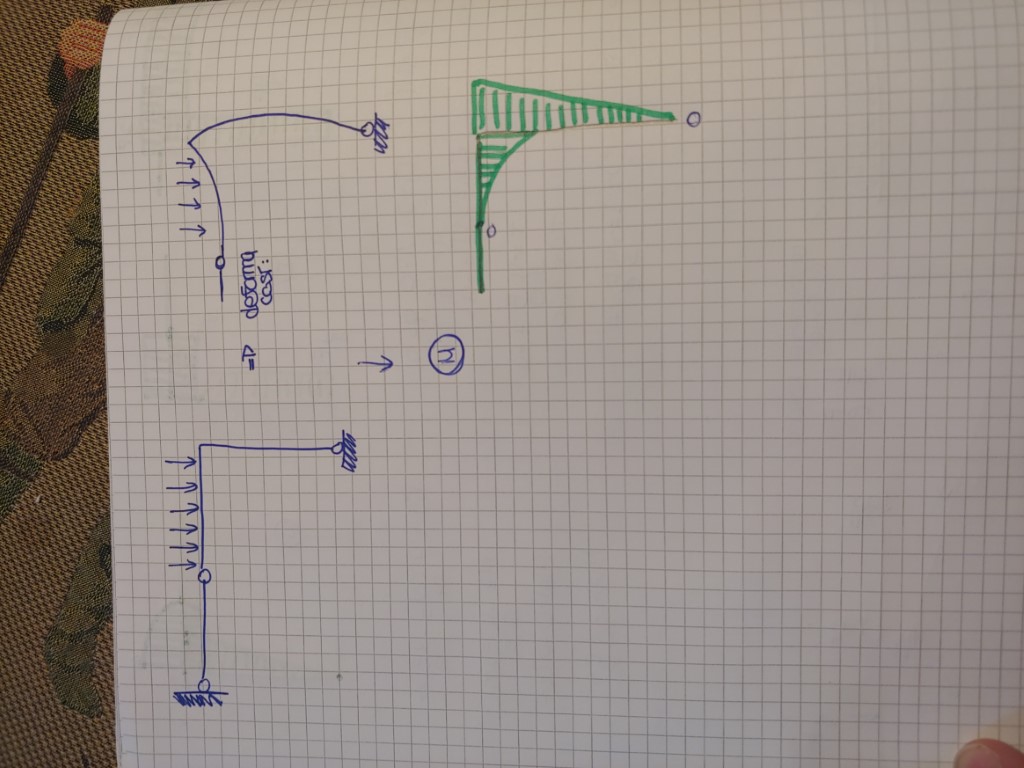 => deforma
così:
M